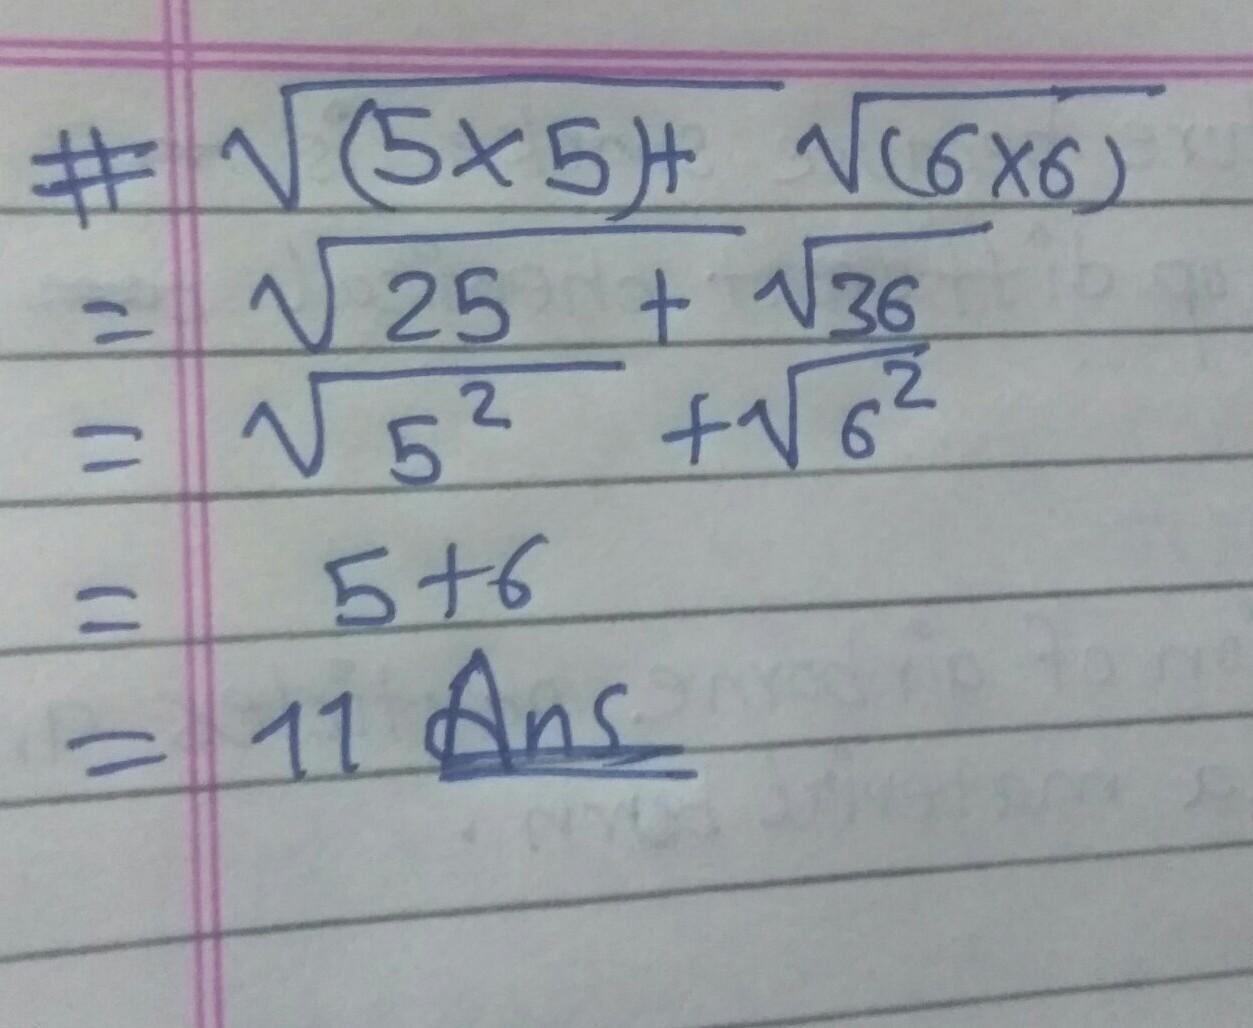 # √(5×5)+ √(6×6)
= √25 + √36
= √5² +√6²
= 5+6
= 11 Ans